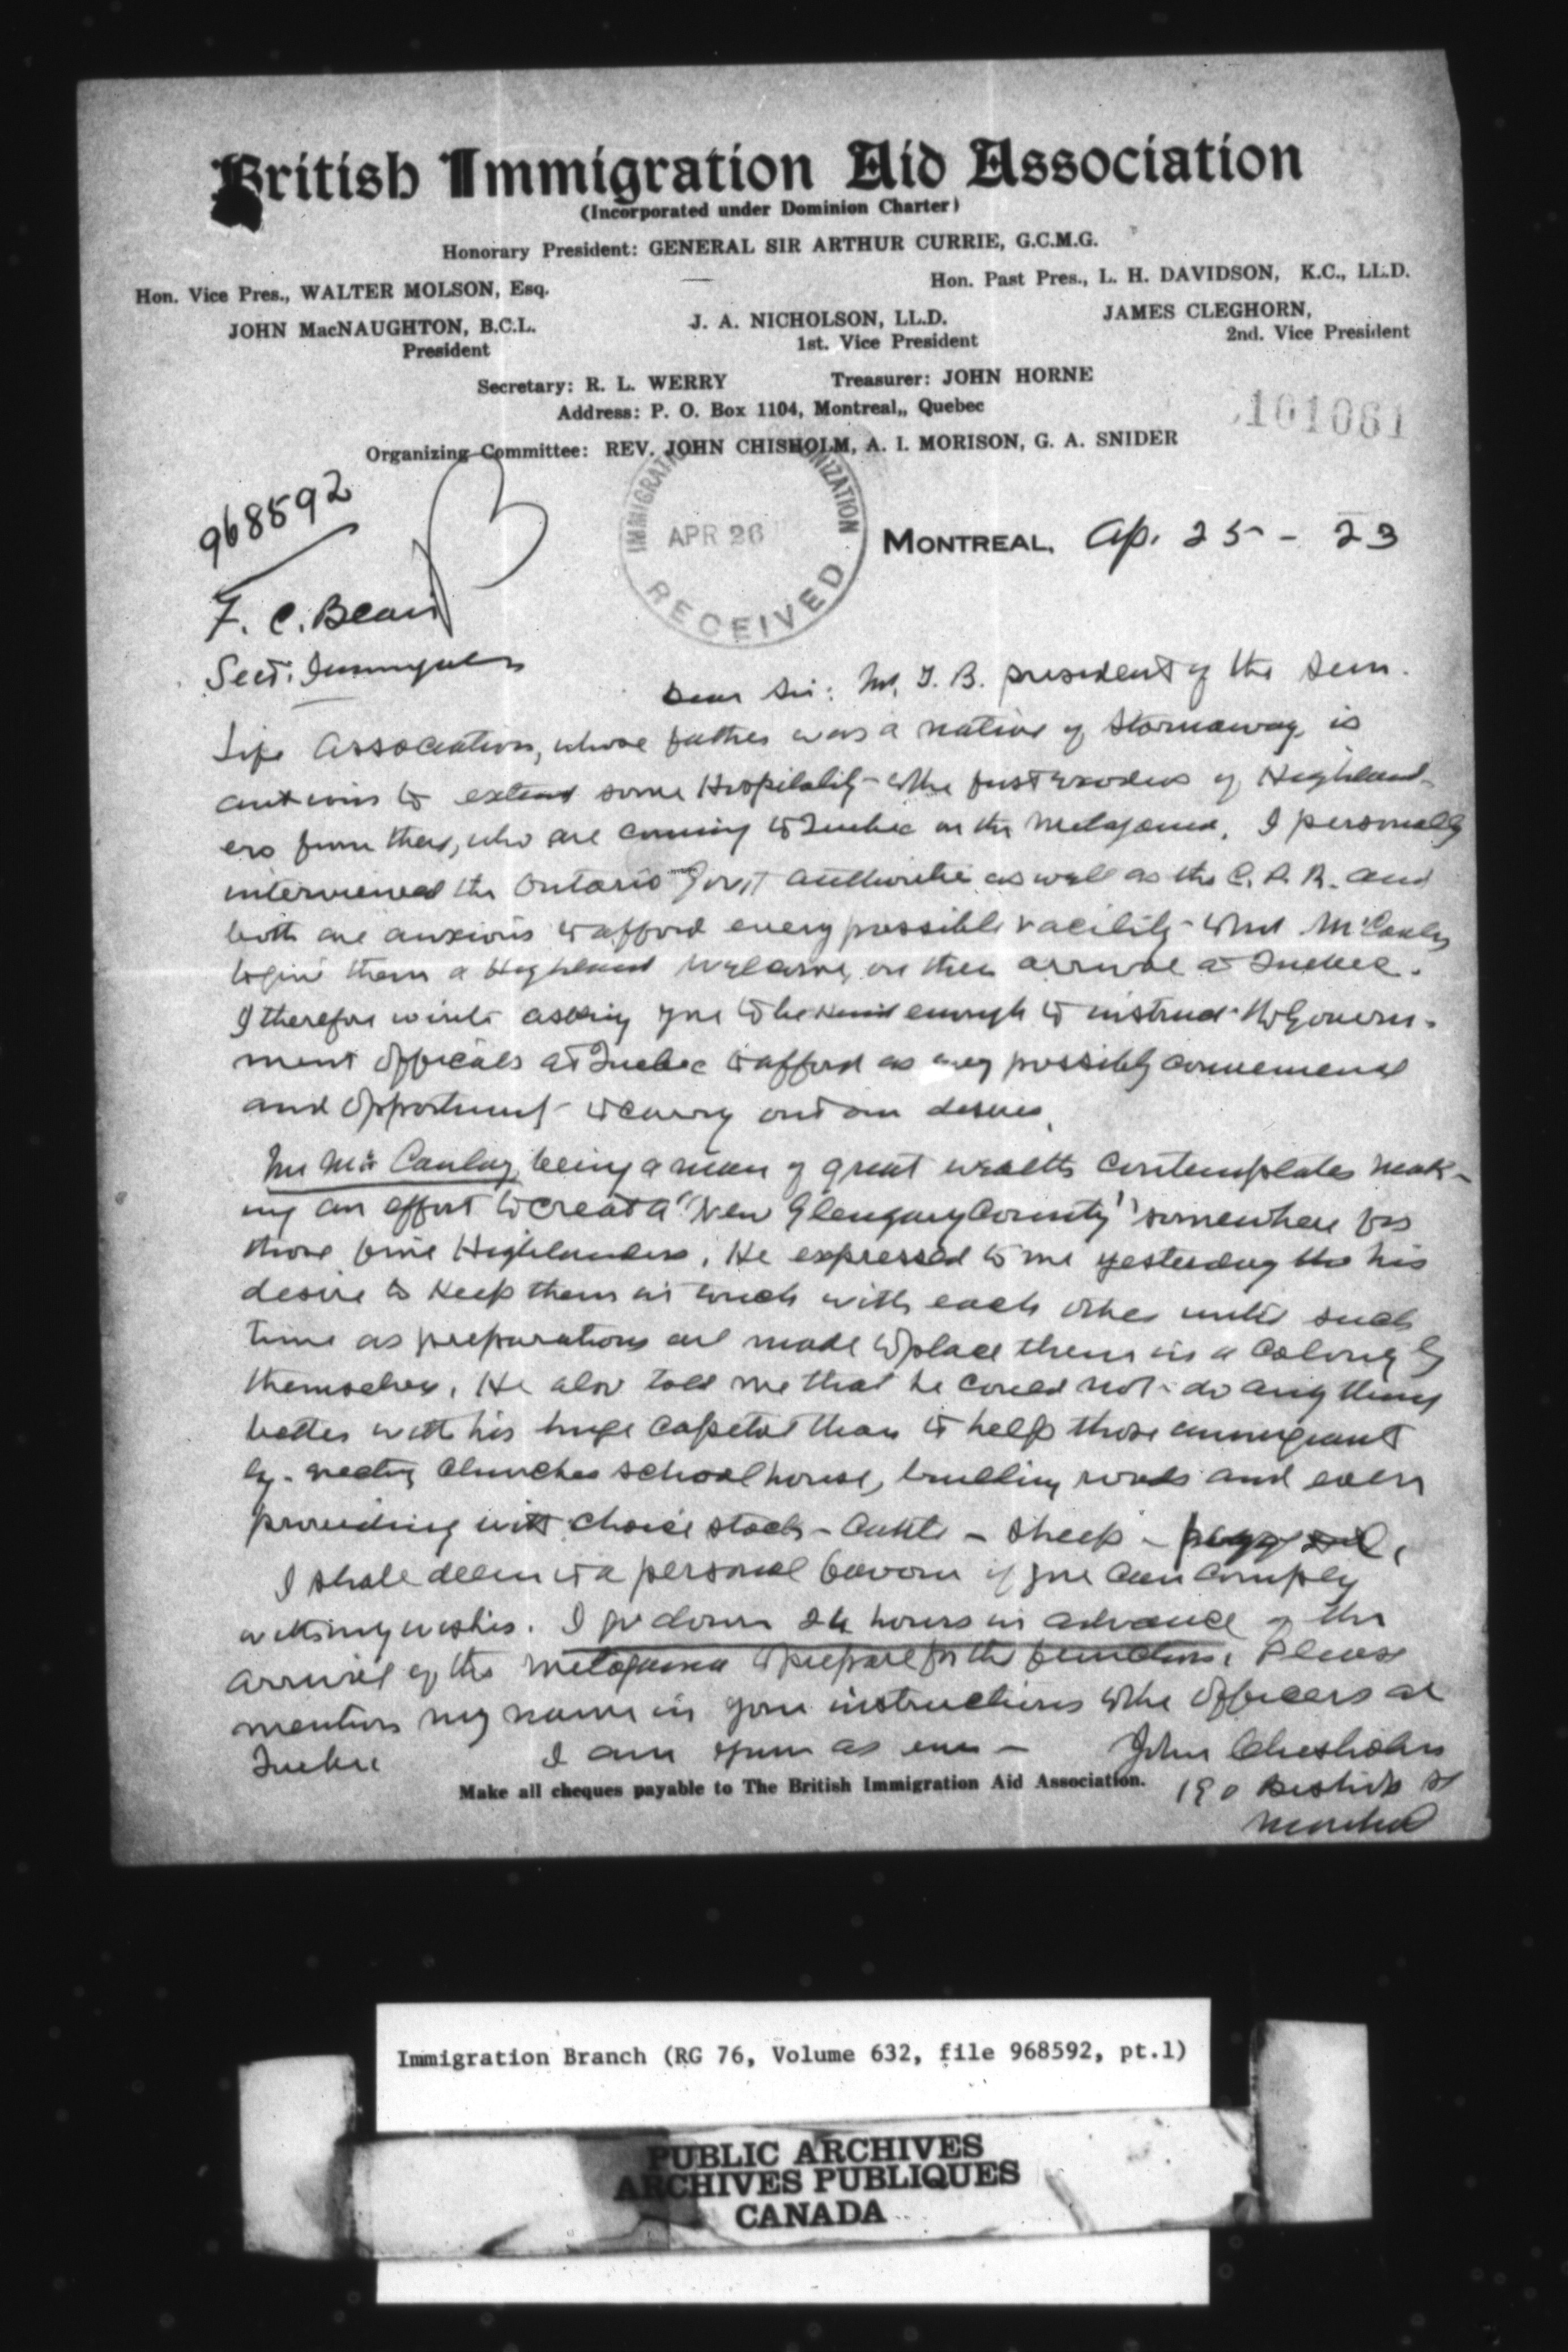 British Immigration Aid Association
(Incorporated under Dominion Charter)
Honorary President: GENERAL SIR ARTHUR CURRIE, G.C.M.G.
Hon. Vice Pres., WALTER MOLSON, Esq.
Hon. Past Pres., L. H. DAVIDSON, K.C., LL.D.
JOHN MacNAUGHTON, B.C.L.
President
J. A. NICHOLSON, LL.D.
1st. Vice President
JAMES CLEGHORN,
2nd. Vice President
Secretary: R. L. WERRY Treasurer: JOHN HORNE
Address: P. O. Box 1104, Montreal,, Quebec
101061
Organizing Committee: REV. JOHN CHISHOLM, A. I. MORISON, G. A. SNIDER
968592
APR 26
RECEIVED
MONTREAL, Ap. 25 - 23
F. C. Blair
Sect:
Dear Sir: Mr. T. B. president of the Sun
Life Association, whose father was a native of Stornaway, is
anxious to extend some Hospitality to the first exodus of Highland-
ers from there, who are coming to Quebec on the Metagama. I personally
interviewed the Ontario Gov't authorities as well as the C. P. R. and
both are anxious to afford every possible facility McCauley
to give them a Highland Welcome, on their arrival at Quebec.
I therefore write asking you to be kind enough to instruct the Govern-
ment Officials at Quebec to afford as every possibly convenience
and opportunity to carry out our desires.
Mr McCaulay, being a man of great wealth contemplates mak-
ing an effort to creat a "New Glengary County" somewhere for
those fine Highlanders. He expressed to me yesterday his
desire to keep them in touch with each other until such
time as preparations are made to place them in a Colony by
themselves. He also told me that he could not do anything
better with his huge capital than to help those immigrant
by erecting Churches school house, building roads and even
providing with choice stock - Cattle - Sheep -
I shall deem it a personal favour if you can comply
with my wishes. I go down 24 hours in advance of the
arrival of the Metagama to prepare for the function. Please
mention my name in your instructions to the Officers at
Quebec I am yours as ever - John Chisholm
Make all cheques payable to The British Immigration Aid Association.
190 St
Montreal
Immigration Branch (RG 76, Volume 632, file 968592, pt.1)
PUBLIC ARCHIVES
ARCHIVES PUBLIQUES
CANADA